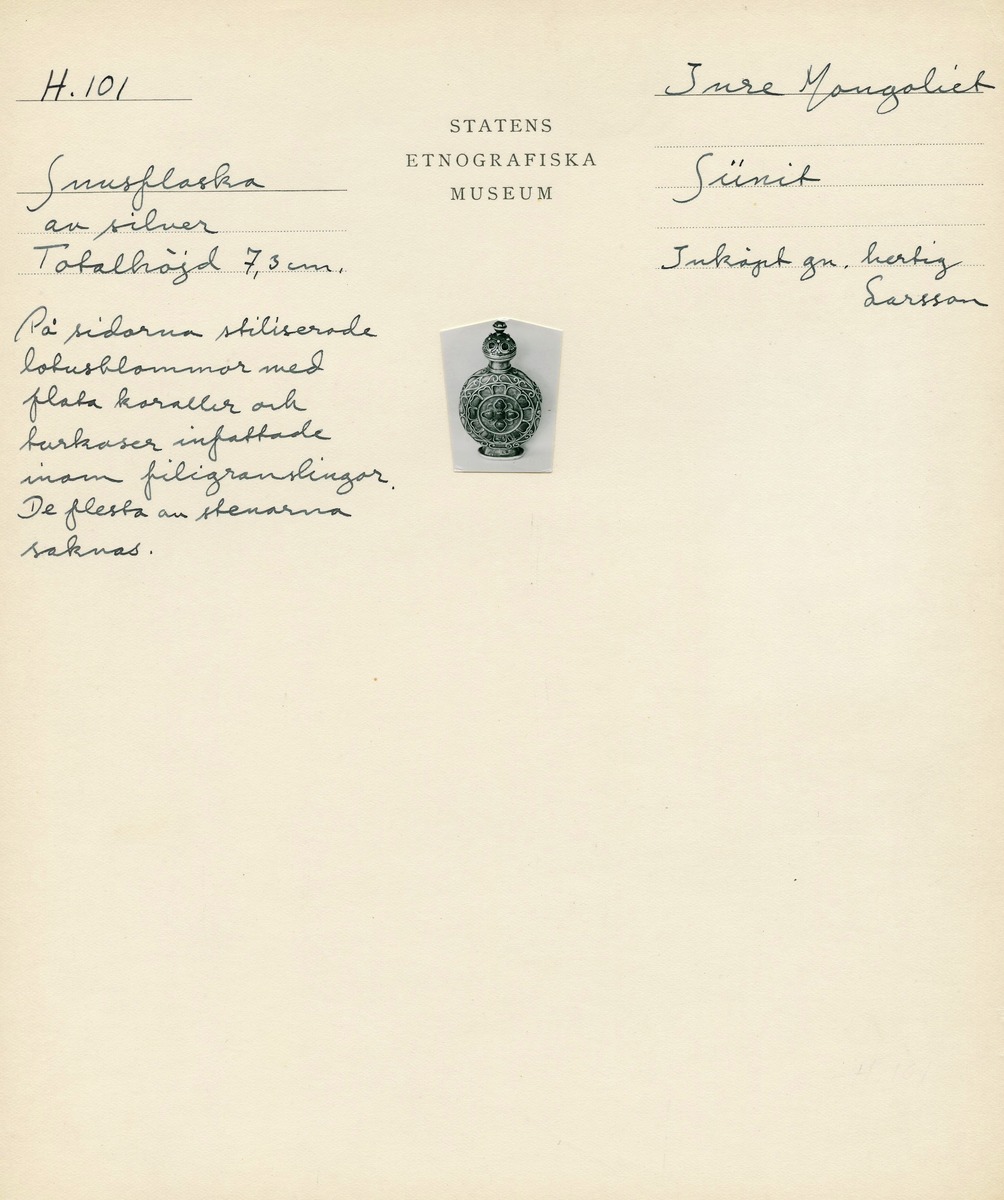 H. 101
Snusflaska
av silver
Totalhöjd 7,3 cm.
På sidorna stiliserade
lotusblommor med
flata koraller och
turkoser infattade
inom filigranslingor.
De flesta av stenarna
saknas.
STATENS
ETNOGRAFISKA
MUSEUM
Inre Mongoliet
Sünit
Inköpt gn. hertig
Larsson